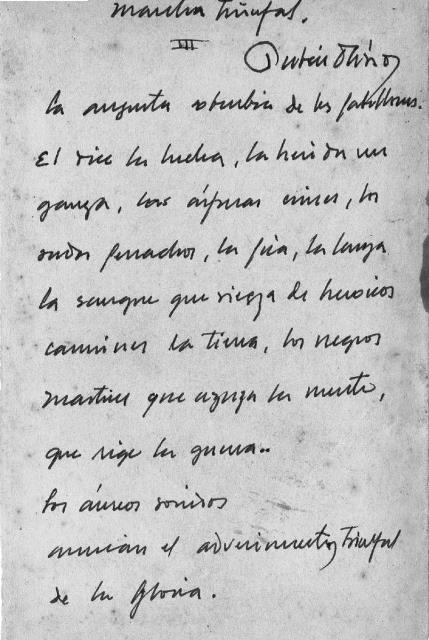 marcha triunfal.
III
Rubén Darío
la augusta soberbia de los pabellones.
El dice la lucha, la herida ven
ganza, las ásperas crines, los
rudos penachos, la pica, la lanza
la sangre que riega de heroicos
carmines la tierra, los negros
mastines que azuza la muerte,
que rige la guerra..
Los áureos sonidos
anuncian el advenimiento triunfal
de la Gloria.